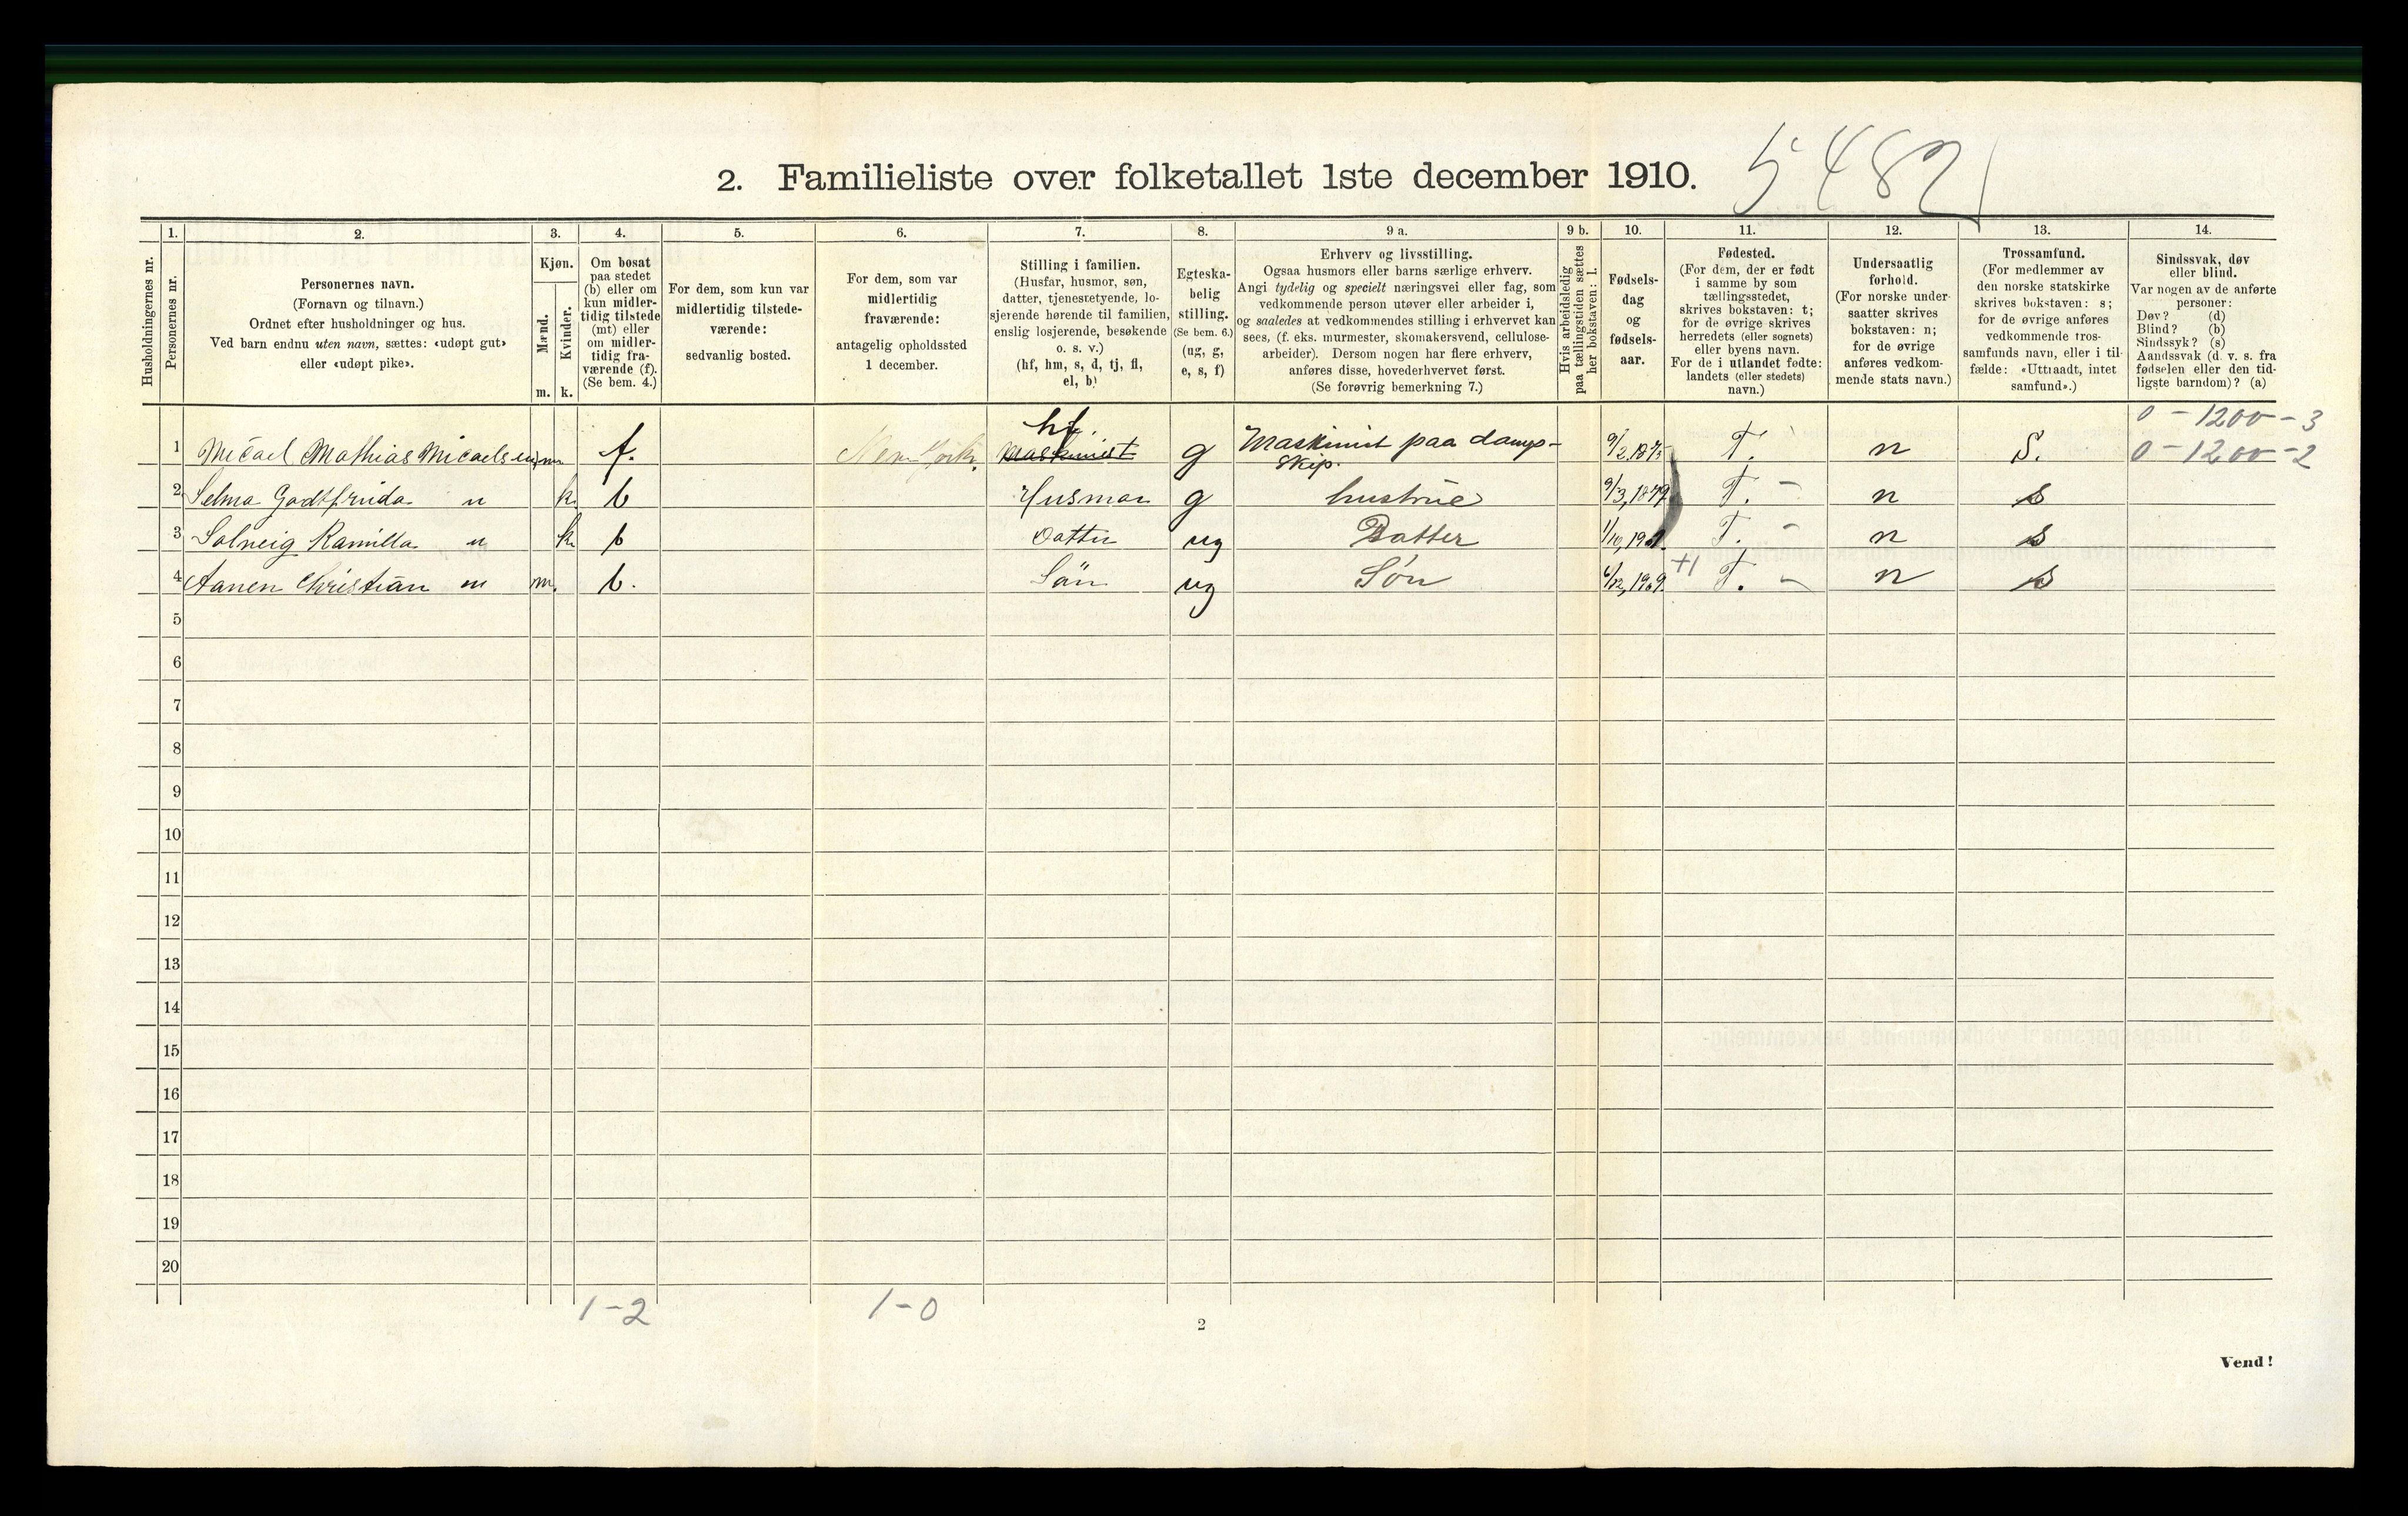 5482
2. Familieliste over folketallet 1ste december 1910.
Husholdningernes nr.
1.
Personernes nr.
2.
Personernes navn.
(Fornavn og tilnavn.)
Ordnet efter husholdninger og hus.
Ved barn endnu uten navn, sættes: «udøpt gut»
eller «udøpt pike».
3.
Kjøn.
Mænd.
Kvinder.
m. k.
4.
Om bosat
paa stedet
(b) eller om
kun midler-
tidig tilstede
(mt) eller
om midler-
tidig fra-
værende (f).
(Se bem. 4.)
5.
For dem, som kun var
midlertidig tilstede-
værende:
sedvanlig bosted.
6.
For dem, som var
midlertidig
fraværende:
antagelig opholdssted
1 december.
7.
Stilling i familien.
(Husfar, husmor, søn,
datter, tjenestetyende, lo-
sjerende hørende til familien,
enslig losjerende, besøkende
o. s. v.)
(hf, hm, s, d, tj, fl,
el, b)
8.
Egteska-
belig
stilling.
(Se bem. 6.)
(ug, g,
e, s, f)
9 a.
Erhverv og livsstilling.
Ogsaa husmors eller barns særlige erhverv.
Angi tydelig og specielt næringsvei eller fag, som
vedkommende person utøver eller arbeider i,
og saaledes at vedkommendes stilling i erhvervet kan
sees, (f. eks. murmester, skomakersvend, cellulose-
arbeider). Dersom nogen har flere erhverv,
anføres disse, hovederhvervet først.
(Se forøvrig bemerkning 7.)
9 b.
Hvis arbeidsledig
paa tællingstiden sættes
her bokstaven: l.
10.
Fødsels-
dag
og
fødsels-
aar.
11.
Fødested.
(For dem, der er født
i samme by som
tællingsstedet,
skrives bokstaven: t;
for de øvrige skrives
herredets (eller sognets)
eller byens navn.
For de i utlandet fødte:
landets (eller stedets)
navn.)
12.
Undersaatlig
forhold.
(For norske under-
saatter skrives
bokstaven: n;
for de øvrige
anføres vedkom-
mende stats navn.)
13.
Trossamfund.
(For medlemmer av
den norske statskirke
skrives bokstaven: s;
for de øvrige anføres
vedkommende tros-
samfunds navn, eller i til-
fælde: «Uttraadt, intet
samfund».)
14.
Sindssvak, døv
eller blind.
Var nogen av de anførte
personer:
Døv? (d)
Blind? (b)
Sindssyk? (s)
Aandssvak (d. v. s. fra
fødselen eller den tid-
ligste barndom)? (a)
hf. 0 - 1200 - 3
1 Micael Mathias Micaelsen m. f. New York. maskinist g Maskinist paa damp-skip. 9/2,1875 T. n S. 0 - 1200 - 2
2 Selma Godtfrida " k. b Husmor g hustrue 9/3,1879 T. - n s
3 Solveig Kamilla " k. b datter ug Datter 1/10,1901. T. - n s
4 Aanen Christian " m. b. Sön ug Søn 6/12,1909. +1 T. - n s
5
6
7
8
9
10
11
12
13
14
15
16
17
18
19
20
1-2 1-0
2
Vend!